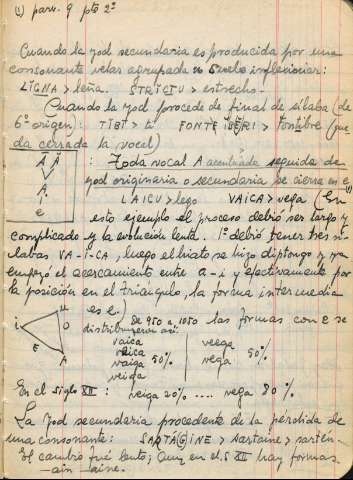 (1) parr. 9 pto 2º
Cuando la yod secundaria es producida por una
consonante velar agrupada o suele implosionar:
LĬGNA > leña. STRĬCTU > estrecho.
Cuando la yod procede de final de sílaba (de
6º origen): TĬBĪ > ti FONTE IBERI > Fontibre (que
da cerrada la vocal)
: Toda vocal A acentuada seguida de
yod originaria o secundaria se cierra en e (1)
LAICU > lego VAICA > vega (En
este ejemplo el proceso debió ser largo y
complicado y la evolución lenta. 1º debió tener tres sí
labas VA-I-CA, luego el hiato se hizo diptongo y ya
empezó el acercamiento entre a-i y efectivamente por
la posición en el triángulo, la forma intermedia
es e.)
De 950 a 1050 las formas con e se
distribuyeron así:
vaica veega
veica vega 50%
vaiga 50%
veiga
En el siglo XII: veiga 20% .... vega 80%.
La yod secundaria procedente de la pérdida de
una consonante: SARTAGINE > sartaine > sartén.
El cambio fué lento; aun en el s. XII hay formas
-ain -aine.
A A
A
i
e
i u
O
E
A